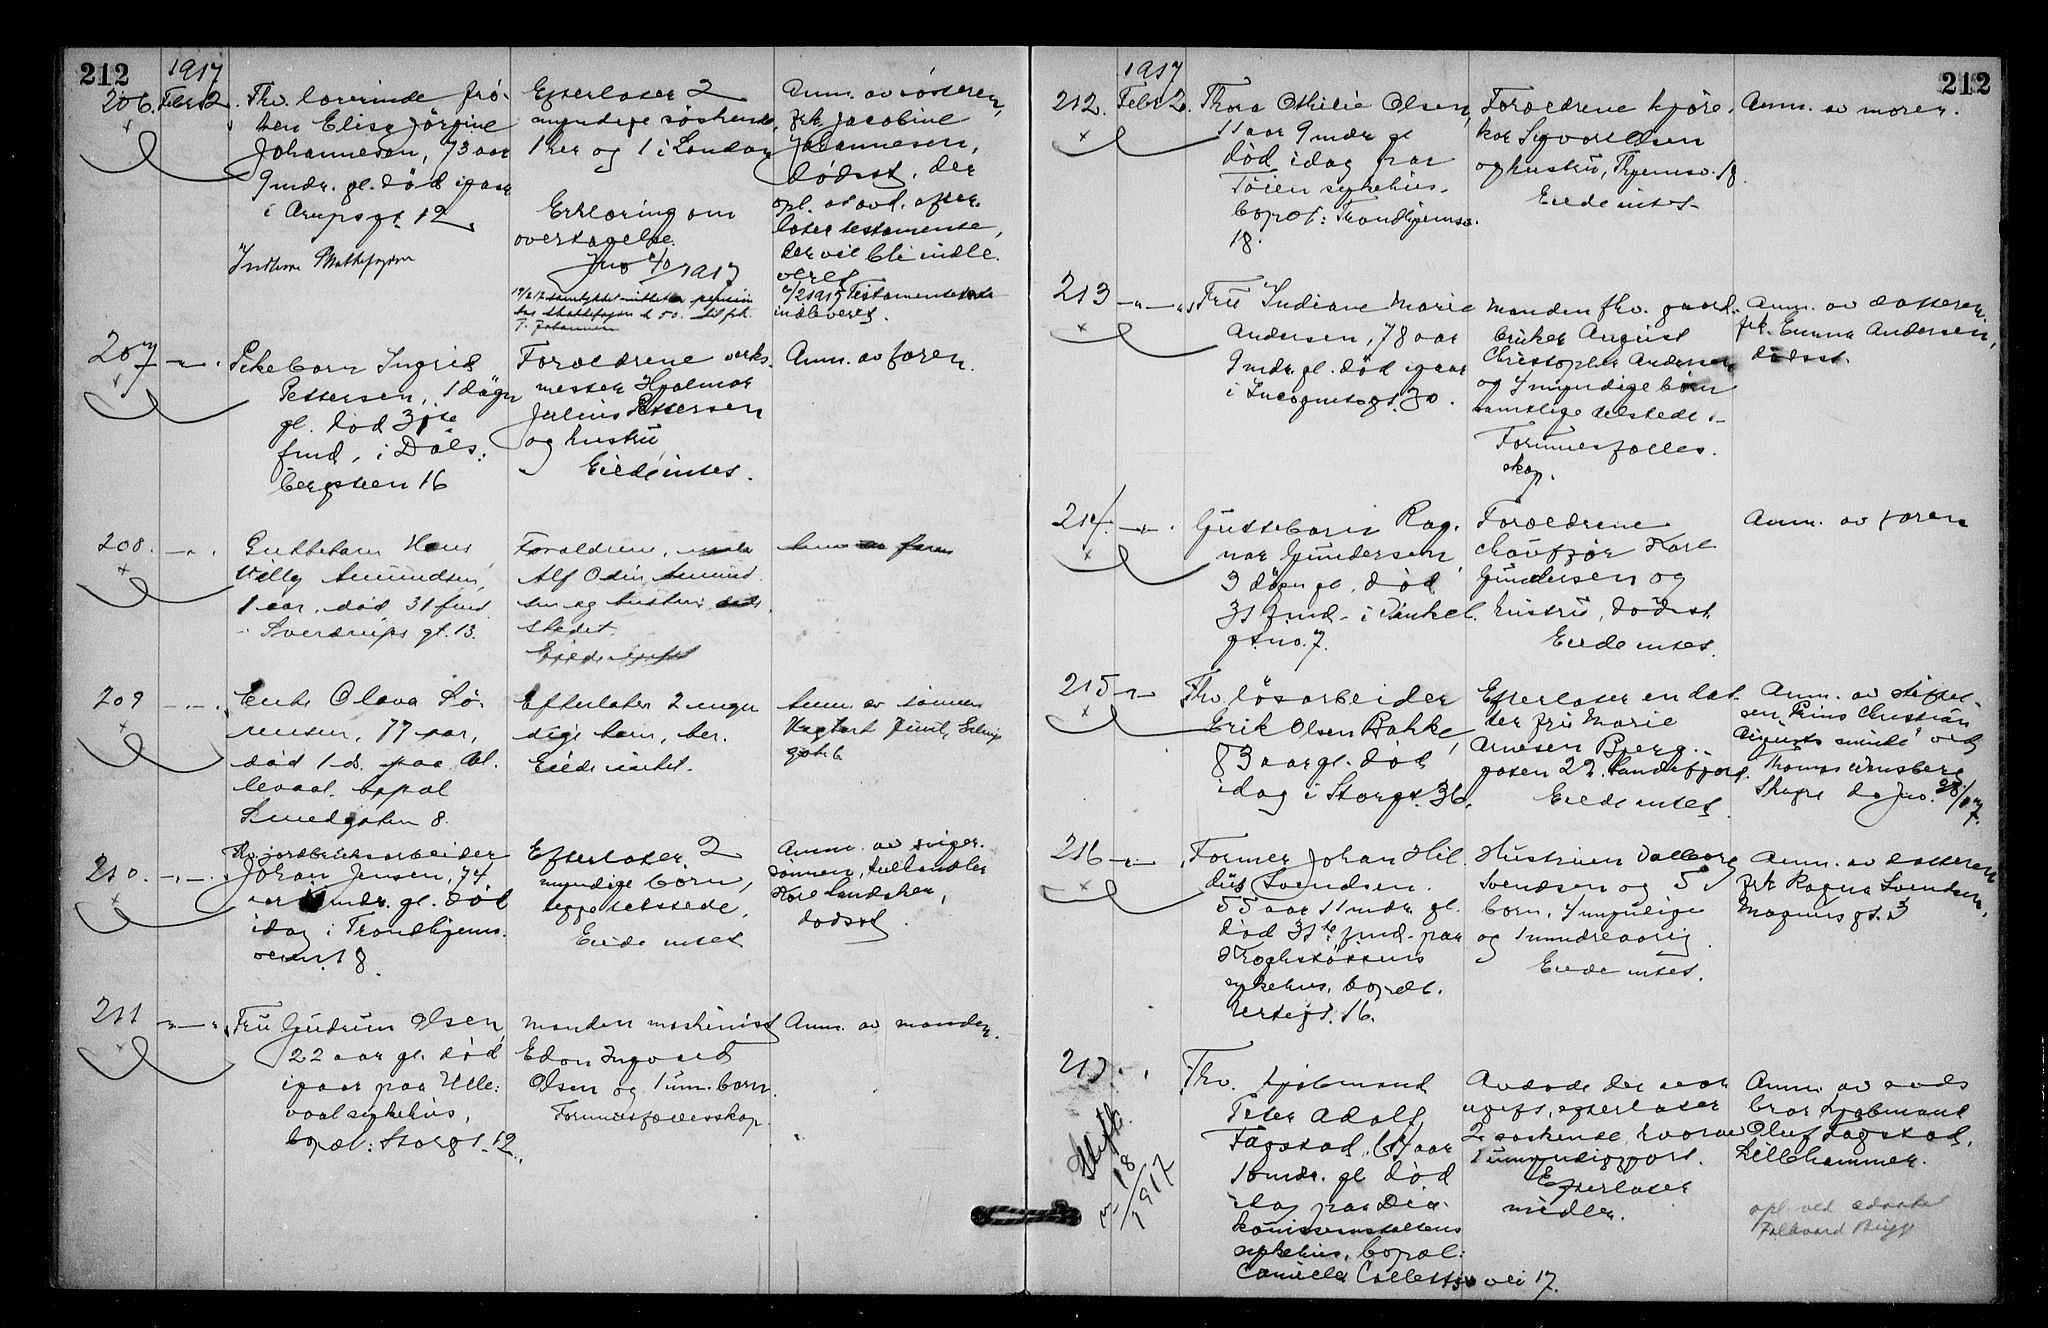 212
1917
206. Febr. 2.
Fhv. lærerinde frø-
ken Elise Jörgine
Johannesen, 73 aar
9 mdr. gl. död igaar
i Arupsgt. 12
Efterlater 2
myndige søskende,
1 her og 1 i London
Erklæring om
overtagelse.
1917
Anm. av søsteren,
frk. Jacobine
Johannesen,
dødsst. der
opl. at avd. efter-
later testamente,
der vil bli indle-
veret
6/2 1917 Testamentet
indleveret.
207
Pikebarn Ingrid
Pettersen, 1 døgn
gl. död 31te
fmd. i Dals-
bergstien 16
Forældrene verks-
mester Hjalmar
Julius Pettersen
og hustru
Eiede intet.
Anm. av faren.
208.
Guttebarn Hans
Willy Amundsen,
1 aar, død 31 fmd
i Sverdrups gt. 13.
Forældrene,
Alf Odin Amund-
sen og hustru
stedet.
Eiede intet
Anm av faren
209
Enke Olava Sö-
rensen, 77 aar,
död 1. ds. paa Ul-
levaal, bopæl
Smedgaten 8.
Efterlater 2 myn-
dige barn, her.
Eiede intet.
Anm. av sönnen
210.
Fhv. jordbruksarbeider
Johan Jensen, 74
aar mdr. gl. död
idag i Trondhjems-
veien 18.
Efterlater 2
myndige börn,
begge telstede.
Eiede intet
Anm. av sviger-
sønnen,
dødsst.
211
Fru Gudrun Olsen,
22 aar gl. död
igaar paa Ulle-
vaal sykehus,
bopæl: Storgt. 12.
Manden maskinist
Edon Ingvald
Olsen og 1 um. barn.
Formuesfællesskap.
Anm. av manden.
1917
212
212. Febr. 2.
Thora Othilie Olsen,
11 aar 9 mdr. gl
död idag paa
Töien sykehus.
bopæl: Trondhjemsv.
18.
Forældrene kjöre-
kar Syver Olsen
og hustru, Thjemsv. 18
Eiede intet
Anm. av moren.
213
Fru Indiane Marie
Andersen, 78 aar
9 mdr. gl. död igaar
i Incognitogt. 30.
Manden fhv. gaard-
bruker August
Christopher Andersen
og 4 myndige børn
samtlige telstede.
Formuesfælles-
skap.
Anm. av datteren,
frk. Emma Andersen,
dødsst.
214.
Guttebarn Rag-
nar Gundersen,
3 døgn gl. död
31 fmd. i Vinkel-
gt. no. 7.
Forældrene
chauffør Karl
Gundersen og
hustru, dødsst.
Eiede intet.
Anm. av faren
215
Fhv. løsarbeider
Erik Olsen Bakke,
83 aar gl. död
idag i Storgt. 36.
Efterlater en dat-
ter fru Marie
Arnesen Bjerg-
gaten 22. Sandefjord.
Eiede intet.
Anm. av stiftel-
sen Prins Christian
Augusts minde ved
216
Former Johan Hil-
dus Svendsen.
55 aar 11 mdr. gl.
död 31te fmd. paa
Krohgstøttens
sykehus, bopæl.
Vertsgt. 16.
Hustruen Valborg
Svendsen og 5
børn, 4 myndige
og 1 mindreaarig
Eiede intet.
Anm. av datteren
frk Ragna Svendsen,
Magnusgt. 3
217.
Fhv. kjøbmand
Peter Adolf
Fagstad, 64 aar
10 mdr. gl. död
idag paa Dia-
konissenanstaltens
sykehus, bopæl:
Camilla Colletts vei 17.
Avdøde der var
ugift, efterlater
2 søskende, hvorav
1 umyndiggjort.
Efterlater
midler.
Anm. av avds
bror kjøbmand
Oluf Fagstad,
Lillehammer.
opl. ved advokat
Skifte.
1917